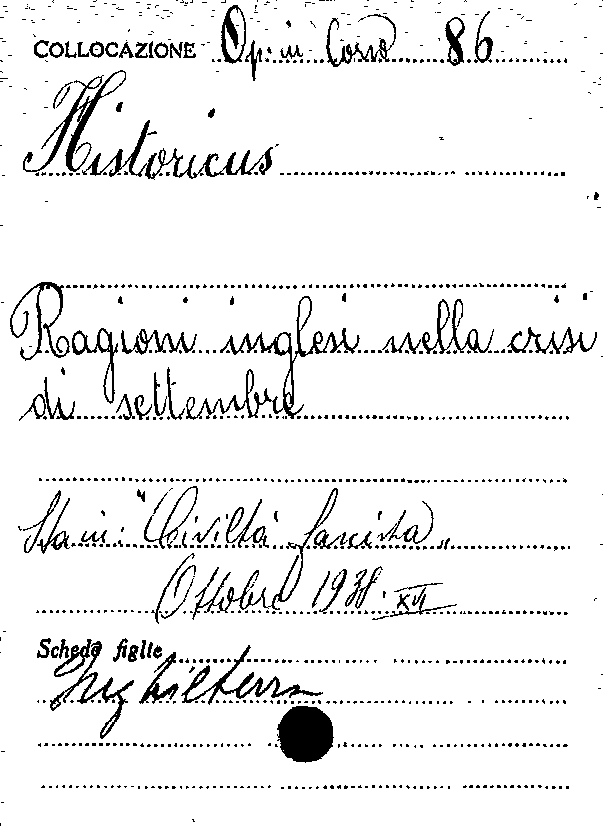 COLLOCAZIONE Op. in Corso 86
Historicus
Ragioni inglesi nella crisi
di settembre
Sta in: "Civiltà fascista„
Ottobre 1938. XVI
Schede figlie
Inghilterra